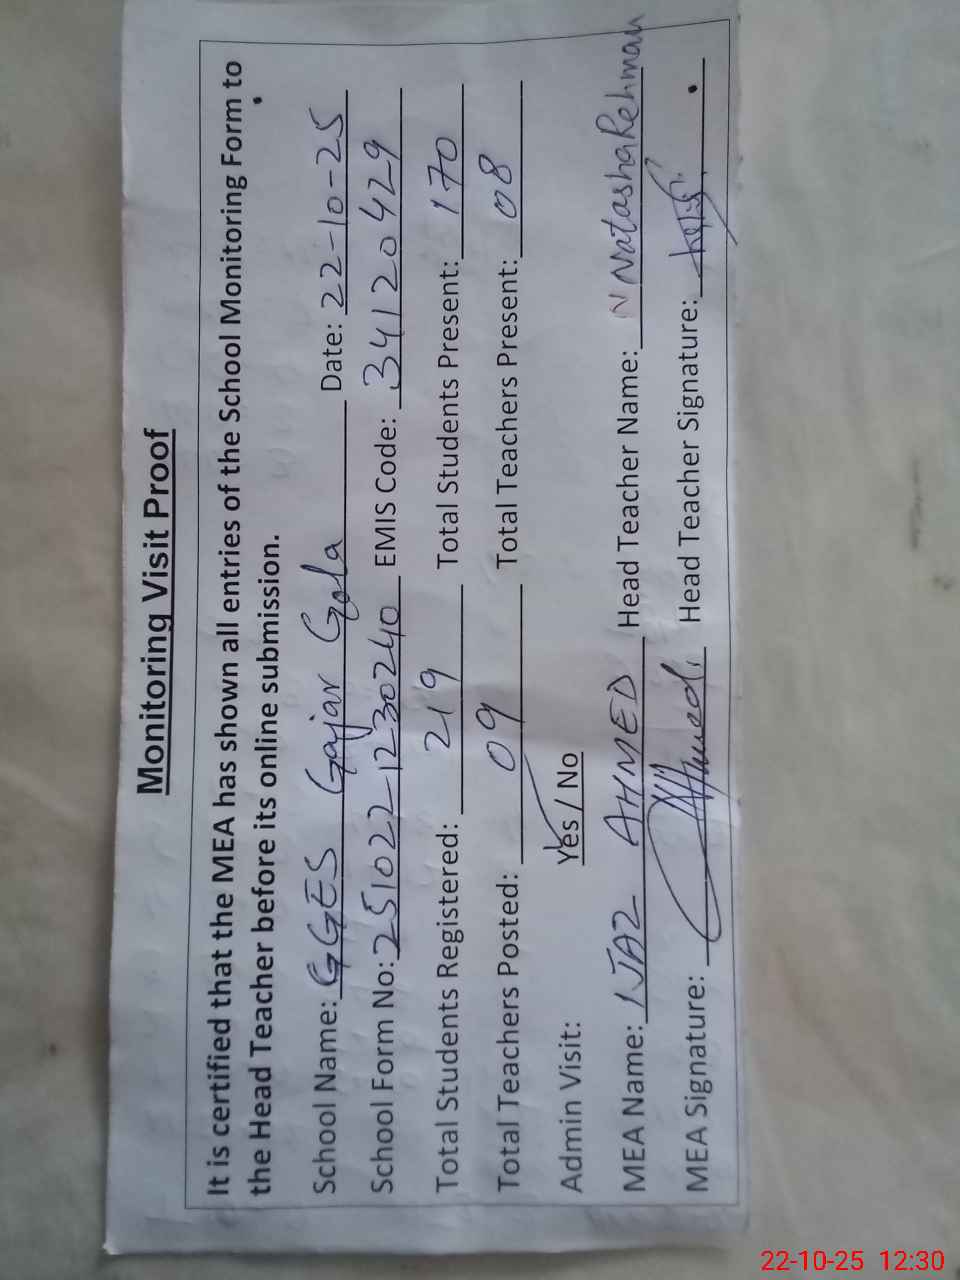 Monitoring Visit Proof
It is certified that the MEA has shown all entries of the School Monitoring Form to
the Head Teacher before its online submission.
School Name: GGES Gajar Gola Date: 22-10-25
School Form No: 251022-1230240 EMIS Code: 34120429
Total Students Registered: 219 Total Students Present: 170
Total Teachers Posted: 09 Total Teachers Present: 08
Admin Visit: Yes / No
MEA Name: IJAZ AHMED Head Teacher Name: N Natasha Rehman
MEA Signature: Ahmed. Head Teacher Signature:
22-10-25 12:30